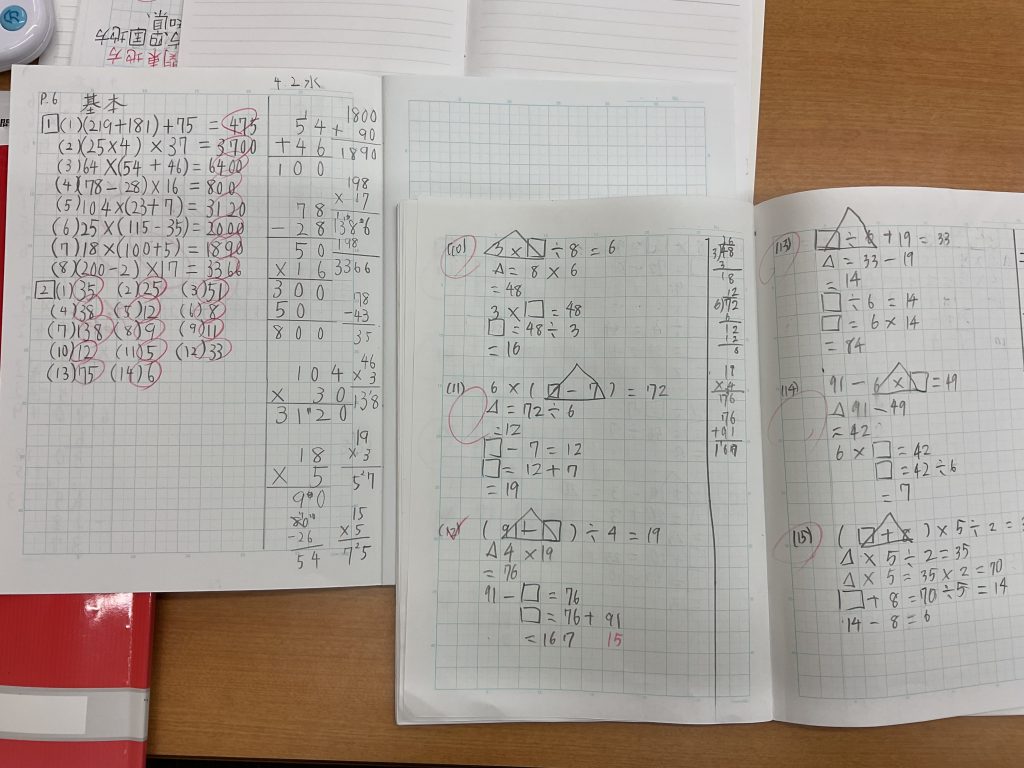 関東地方
四国地方
P.6 基本
4.2水
1 (1)(219+181)+75 = 475
(2)(25×4)×37 = 3700
(3)64×(54+46)=6400
(4)(78-28)×16=800
(5)104×(23+7)=3120
(6)25×(115-35)=2000
(7)18×(100+5)=1890
(8)(200-2)×17=3366
2 (1)35 (2)25 (3)51
(4)38 (5)12 (6)8
(7)138 (8)9 (9)11
(10)12 (11)5 (12)33
(13)75 (14)6
54
+46
100
78
-28
50
×16
300
50
800
104
×30
3120
18
×5
90
80
-26
54
1800
+90
1890
198
×17
1386
198
3366
78
-43
35
46
×3
138
19
×3
57
15
×5
75
(10) 3×□÷8=6
△=8×6
=48
3×□=48
□=48÷3
=16
(11) 6×(□-7)=172
△=72÷6
=12
□-7=12
□=12+7
=19
(12) (91-□)÷4=19
△4×19
=76
91-□=76
□=76+91
=167 15
16
3)48
3
18
12
6)72
6
12
12
0
19
×4
76
76
+91
167
(13) □÷6+19=33
△=33-19
=14
□÷6=14
□=6×14
=84
(14) 91-6×□=49
△91-49
=42
6×□=42
□=42÷6
=7
(15) (□+8)×5÷2=
△×5÷2=35
△×5=35×2=70
□+8=70÷5=14
14-8=6